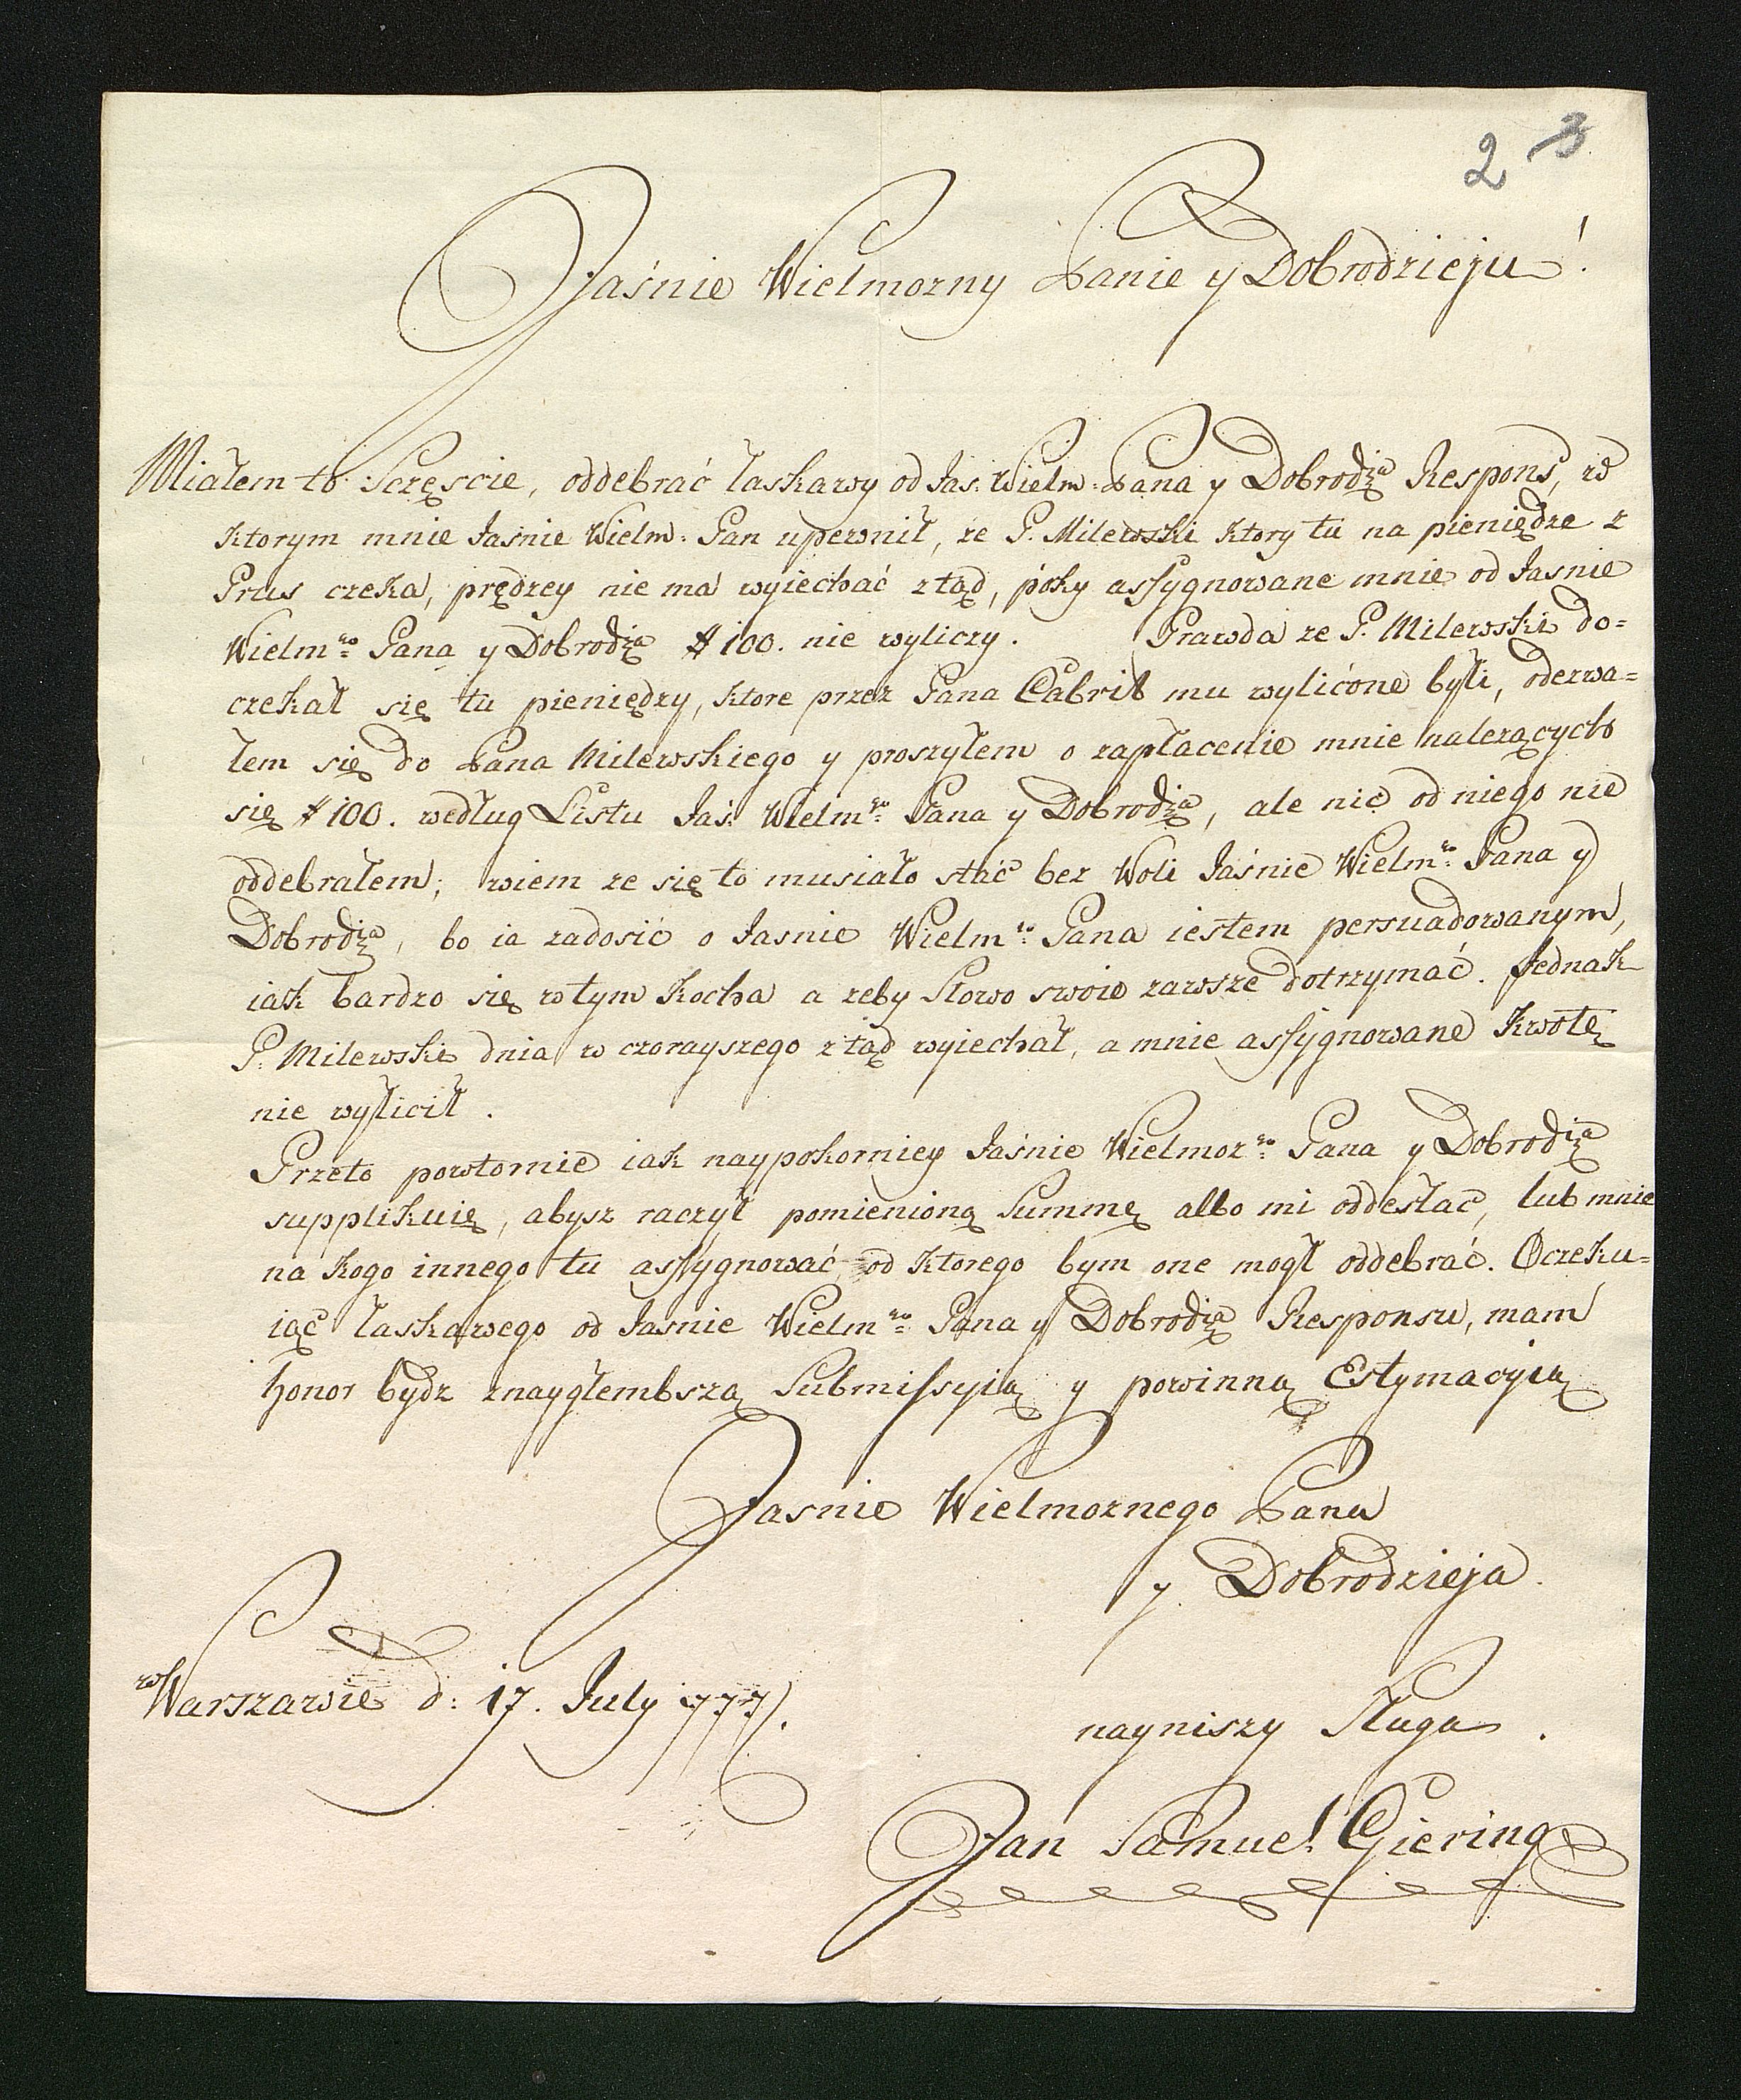 2 3
Jaśnie Wielmozny Panie y Dobrodzieju!
Miałem to Sczęscie, oddebrać łaskawy od Jas: Wielm: Pana y Dobrodźa Respons, w
ktorym mnie Jasnie Wielm: Pan upewnił, ze P. Milewski ktory tu na pieniędze z
Prus czeka, prędzey nie ma wyiechać ztąd, poky assygnowane mnie od Jasnie
Wielmgo Pana y Dobrodźa # 100. nie wyliczy. Prawda ze P. Milewski do=
czekał się tu pieniędzy, ktore przez Pana Cabrit mu wylicone byłi, oderwa=
łem się do Pana Milewskiego y proszyłem o zapłacenie mnie nalezących
się # 100. według Listu Jaś: Wielmgo Pana y Dobrodźa, ale nic od niego nie
oddebrałem; wiem ze się to musiało stać bez Woli Jaśnie Wielmgo Pana y
Dobrodźa, bo ia zadosić o Jasnie Wielmgo Pana iestem persuadowanym,
iak bardzo się w tym kocha a zeby Słowo swoie zawsze dotrzymać. Jednak
P. Milewski dnia wczorayszego ztąd wyiechał, a mnie assygnowane kwotę
nie wyłicił.
Przeto powtornie iak naypokorniey Jaśnie Wielmozgo Pana y Dobrodźa
supplikuię, abysz raczył pomienioną Summę albo mi oddesłać, lub mnie
na kogo innego tu assygnować od ktorego bym one mogł oddebrać. Oczeku=
iąc łaskawego od Jasnie Wielmgo Pana y Dobrodźa Responsu, mam
honor bydz znaygłembszą Submissyią y powinną Estymacyią
Jasnie Wielmoznego Pana
y Dobrodzieja.
w Warszawie d: 17. July 1777.
nayniszy Sługa.
Jan Samuel Giering